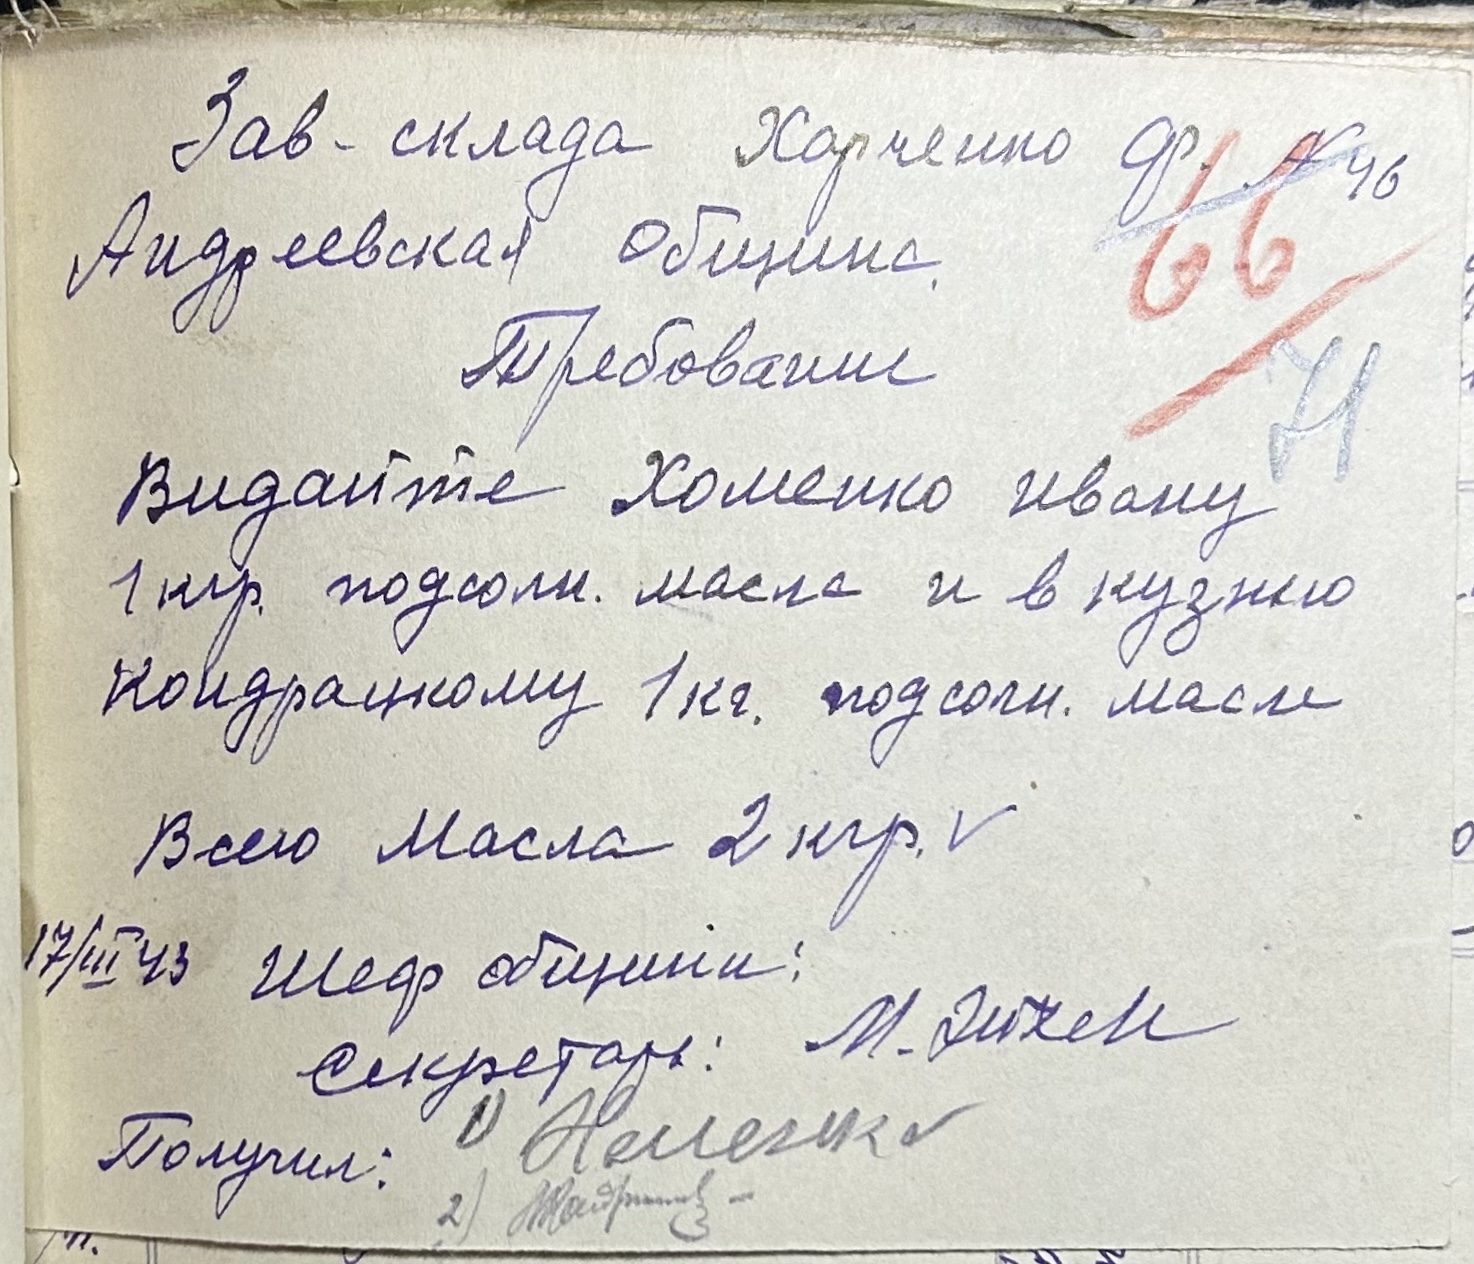 Зав-склада Харченко Ф. № 46
66
Андреевская Община.
Требование
71
Видайте Хоменко Ивану
1 кгр. подсолн. масла и в кузню
Кондрацкому 1 кг. подсолн. масла
Всего Масла 2 кгр. ✓
17/III 43 Шеф общини:
Секретарь: М.
Получил: 1) Хоменко
2)